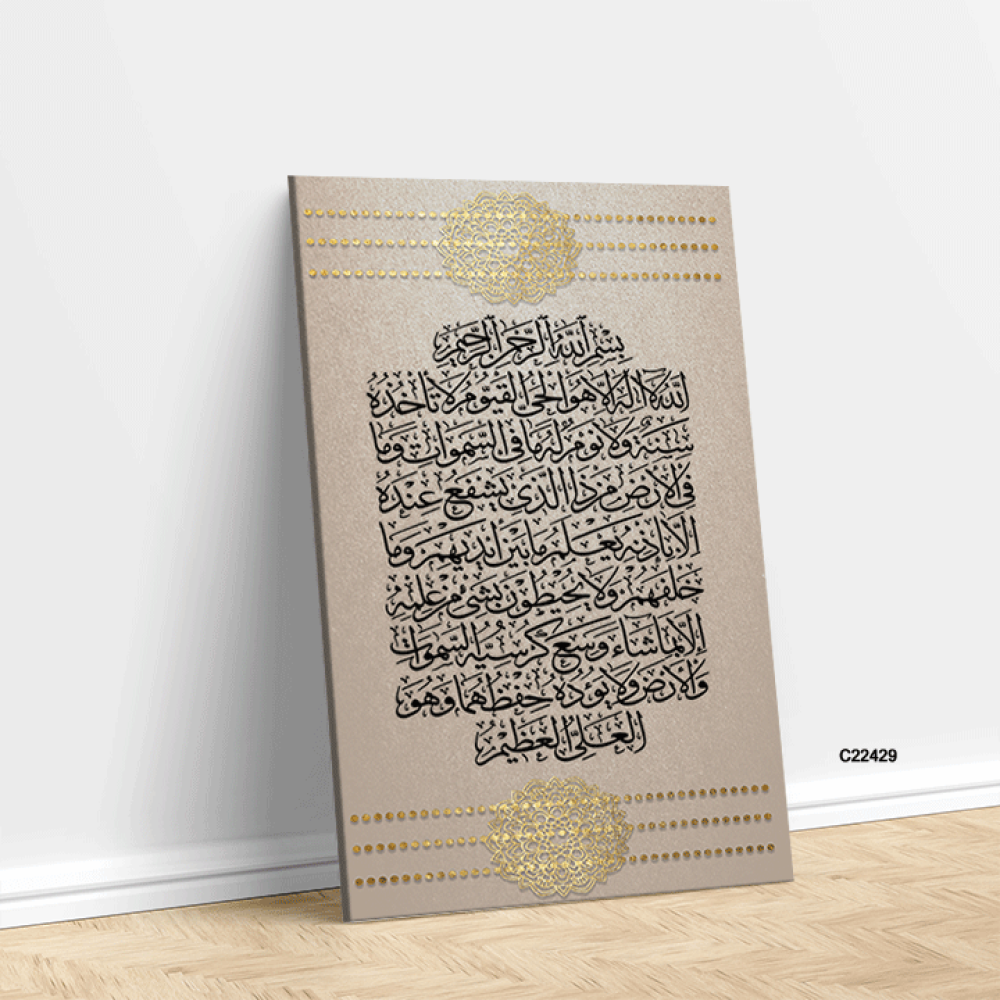 بِسْمِ اللَّهِ الرَّحْمَٰنِ الرَّحِيمِ
اللَّهُ لَا إِلَهَ إِلَّا هُوَ الْحَيُّ الْقَيُّومُ لَا تَأْخُذُهُ
سِنَةٌ وَلَا نَوْمٌ لَهُ مَا فِي السَّمَوَاتِ وَمَا
فِي الْأَرْضِ مَنْ ذَا الَّذِي يَشْفَعُ عِنْدَهُ
إِلَّا بِإِذْنِهِ يَعْلَمُ مَا بَيْنَ أَيْدِيهِمْ وَمَا
خَلْفَهُمْ وَلَا يُحِيطُونَ بِشَيْءٍ مِنْ عِلْمِهِ
إِلَّا بِمَا شَاءَ وَسِعَ كُرْسِيُّهُ السَّمَوَاتِ
وَالْأَرْضَ وَلَا يَئُودُهُ حِفْظُهُمَا وَهُوَ
الْعَلِيُّ الْعَظِيمُ
C22429